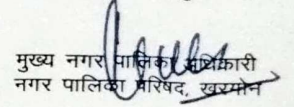 मुख्य नगर पालिका अधिकारी
नगर पालिका परिषद, खरगोन